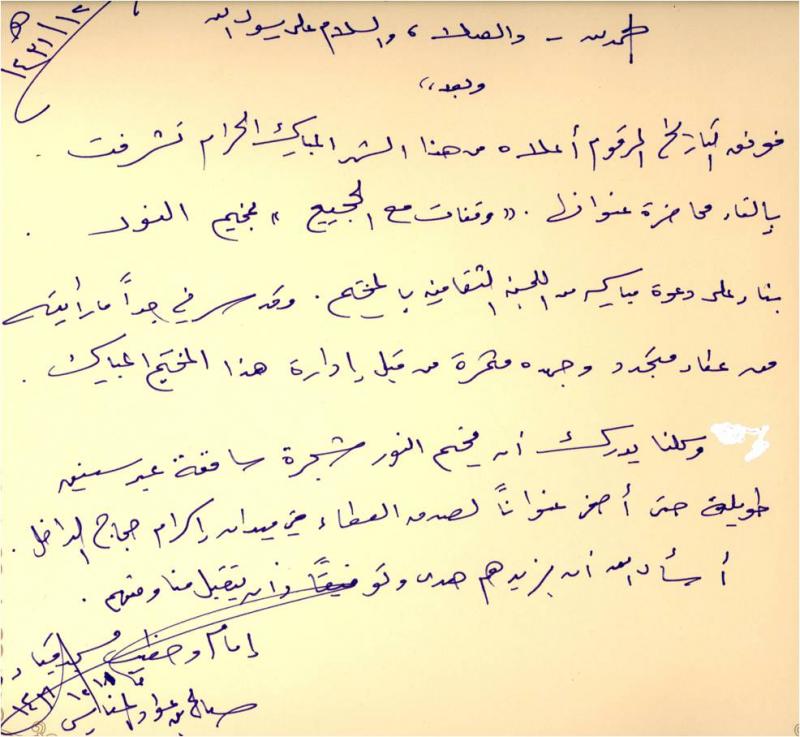 الحمد لله - والصلاة والسلام على رسول الله
وبعد،،
فوفق التاريخ المرقوم أعلاه من هذا الشهر المبارك الحرام تشرفت .
بإلقاء محاضرة عنوانها . "وقفات مع الحجيج" بمخيم النور .
بناء على دعوة مباركة من اللجنة الثقافية بالمخيم . وقد سرني جداً ما رأيته
من عطاء متجدد وجهود مثمرة من قبل إدارة هذا المخيم المبارك .
وكلنا يدرك أن مخيم النور شجرة سامقة عبر سنين
طويلة حتى أضحى عنواناً لصدق العطاء في ميدان إكرام حجاج الداخل .
أسأل الله أن يزيدهم هدى وتوفيقاً وأن يتقبل منا ومنهم .
إمام وخطيب مسجد قباء
صالح بن عواد المغامسي